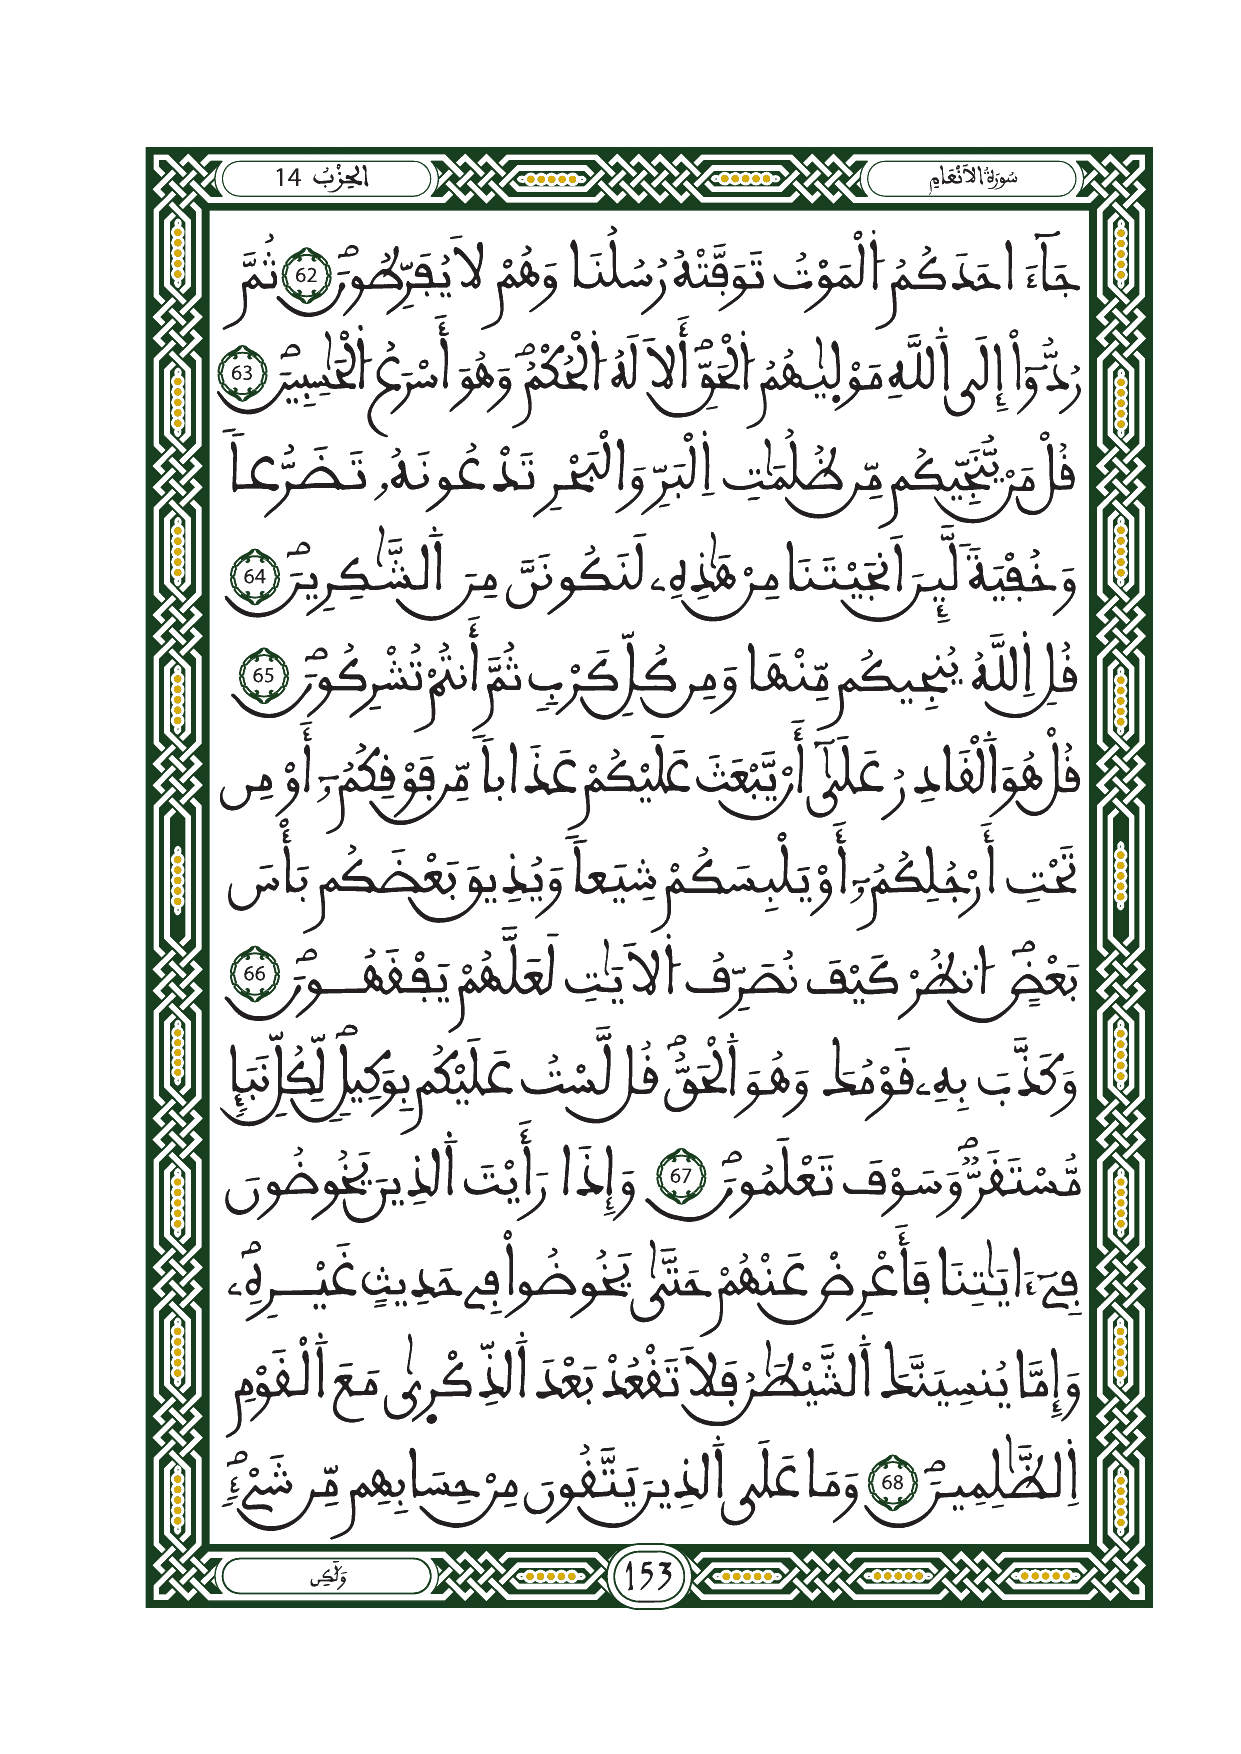 سُورَةُ الأَنْعَامِ
الحِزْبُ 14
جَآءَ احَدَكُمُ اُلْمَوْتُ تَوَفَّتْهُ رُسُلُنَا وَهُمْ لَا يُفَرِّطُونَۖ 62 ثُمَّ
رُدُّوٓاْ إِلَى اَللَّهِ مَوْل۪يٰهُمُ اُلْحَقِّۖ أَلَا لَهُ اُلْحُكْمُۖ وَهُوَ أَسْرَعُ اُلْحَٰسِبِينَۖ 63
قُلْ مَنْ يُّنَجِّيكُم مِّن ظُلُمَٰتِ اِلْبَرِّ وَالْبَحْرِ تَدْعُونَهُۥ تَضَرُّعاً
وَخُفْيَةً لَّئِنَ اَنجَيْتَنَا مِنْ هَٰذِهِۦ لَنَكُونَنَّ مِنَ اَلشَّٰكِرِينَۖ 64
قُلِ اِللَّهُ يُنجِيكُم مِّنْهَا وَمِن كُلِّ كَرْبٖ ثُمَّ أَنتُمْ تُشْرِكُونَۖ 65
قُلْ هُوَ اَلْقَادِرُ عَلَىٰٓ أَنْ يَّبْعَثَ عَلَيْكُمْ عَذَاباً مِّن فَوْقِكُمُۥٓ أَوْ مِن
تَحْتِ أَرْجُلِكُمُۥٓ أَوْ يَلْبِسَكُمْ شِيَعاً وَيُذِيقَ بَعْضَكُم بَأْسَ
بَعْضٍۖ اُنظُرْ كَيْفَ نُصَرِّفُ اُلَايَٰتِ لَعَلَّهُمْ يَفْقَهُونَۖ 66
وَكَذَّبَ بِهِۦ قَوْمُكَ وَهُوَ اَلْحَقُّۖ قُل لَّسْتُ عَلَيْكُم بِوَكِيلٖۖ لِّكُلِّ نَبَإٖ
مُّسْتَقَرّٞۖ وَسَوْفَ تَعْلَمُونَۖ 67 وَإِذَا رَأَيْتَ اَلذِينَ يَخُوضُونَ
فِےٓ ءَايَٰتِنَا فَأَعْرِضْ عَنْهُمْ حَتَّىٰ يَخُوضُواْ فِے حَدِيثٍ غَيْرِهِۦۖ
وَإِمَّا يُنسِيَنَّكَ اَلشَّيْطَٰنُ فَلَا تَقْعُدْ بَعْدَ اَلذِّكْر۪ىٰ مَعَ اَلْقَوْمِ
اِلظَّٰلِمِينَۖ 68 وَمَا عَلَى اَلذِينَ يَتَّقُونَ مِنْ حِسَابِهِم مِّن شَےْءٖۖ
وَلَٰكِن
153